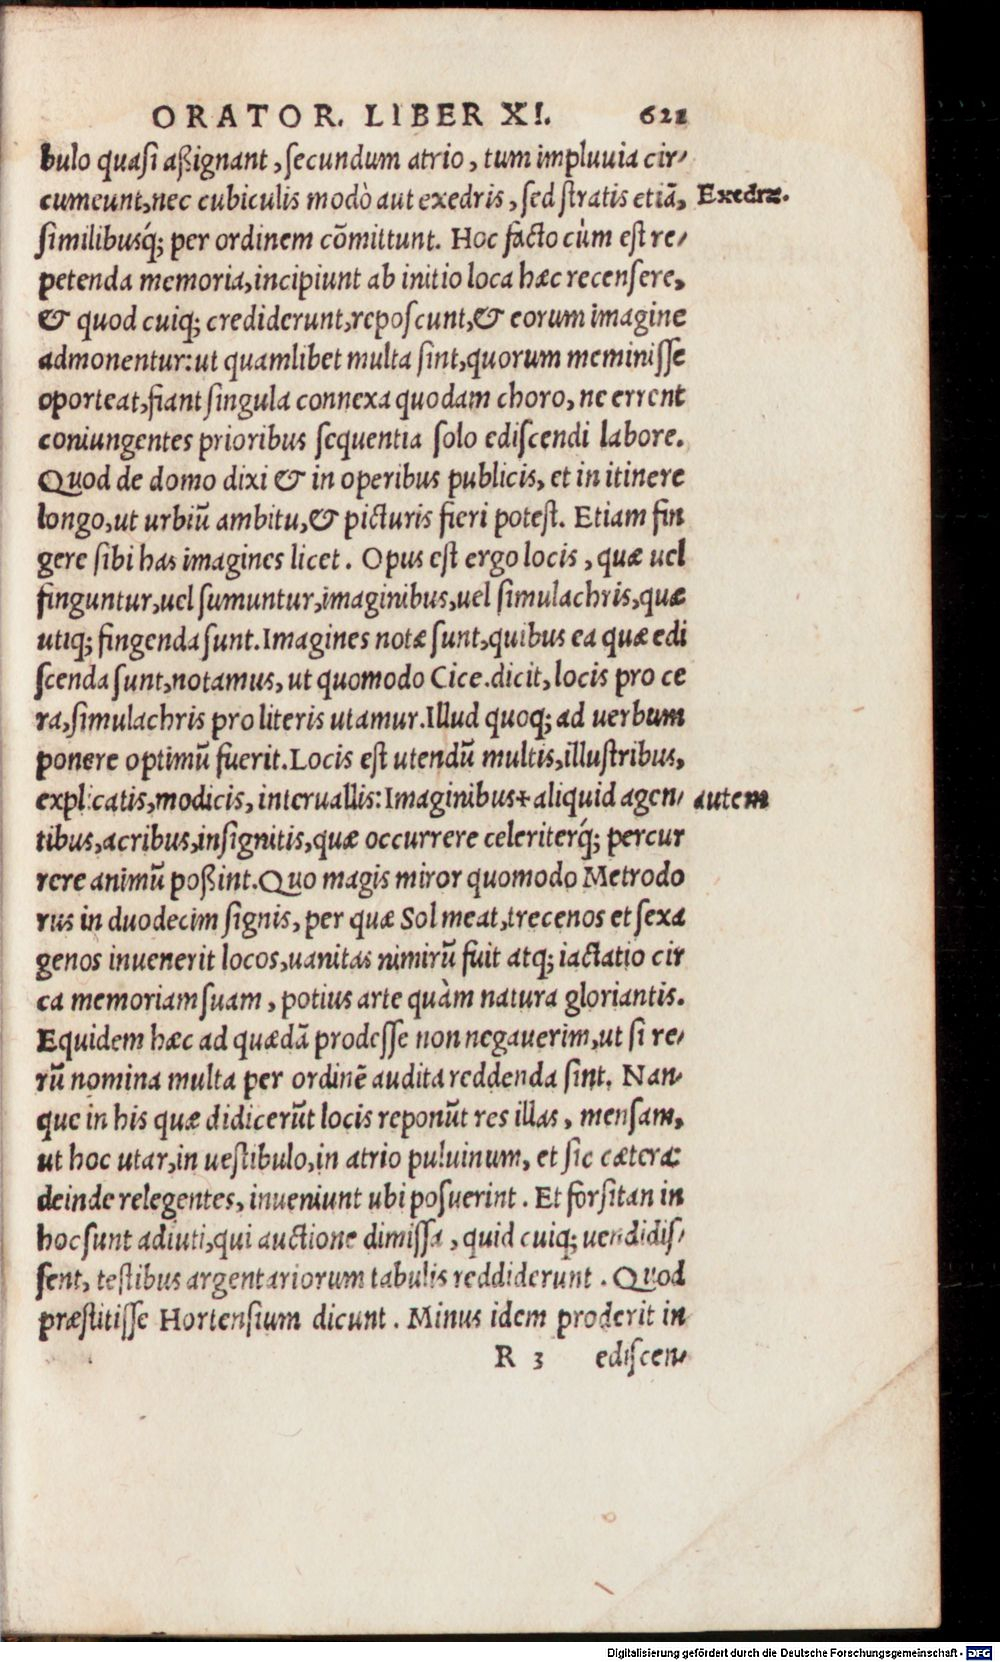 ORATOR. LIBER XI. 621
bulo quasi aßignant, secundum atrio, tum impluuia cir-
cumeunt, nec cubiculis modò aut exedris, sed stratis etiã, Exedræ.
similibusq́; per ordinem cõmittunt. Hoc facto cùm est re-
petenda memoria, incipiunt ab initio loca hæc recensere,
& quod cuiq; crediderunt, reposcunt, & eorum imagine
admonentur: ut quamlibet multa sint, quorum meminisse
oporteat, fiant singula connexa quodam choro, ne errent
coniungentes prioribus sequentia solo ediscendi labore.
Quod de domo dixi & in operibus publicis, et in itinere
longo, ut urbiũ ambitu, & picturis fieri potest. Etiam fin
gere sibi has imagines licet. Opus est ergo locis, quæ uel
finguntur, uel sumuntur, imaginibus, uel simulachris, quæ
utiq; fingenda sunt. Imagines notæ sunt, quibus ea quæ edi
scenda sunt, notamus, ut quomodo Cice. dicit, locis pro ce
ra, simulachris pro literis utamur. Illud quoq; ad uerbum
ponere optimũ fuerit. Locis est utendũ multis, illustribus,
explicatis, modicis, interuallis: Imaginibus+ aliquid agen- autem
tibus, acribus, insignitis, quæ occurrere celeriterq́; percur
rere animũ poßint. Quo magis miror quomodo Metrodo
rus in duodecim signis, per quæ Sol meat, trecenos et sexa
genos inuenerit locos, uanitas nimirũ fuit atq; iactatio cir
ca memoriam suam, potius arte quàm natura gloriantis.
Equidem hæc ad quædã prodesse non negauerim, ut si re-
rũ nomina multa per ordinẽ audita reddenda sint. Nan-
que in his quæ didicerũt locis reponũt res illas, mensam,
ut hoc utar, in uestibulo, in atrio puluinum, et sic cætera:
deinde relegentes, inueniunt ubi posuerint. Et forsitan in
hoc sunt adiuti, qui auctione dimissa, quid cuiq; uendidis-
sent, testibus argentariorum tabulis reddiderunt. Quod
præstitisse Hortensium dicunt. Minus idem proderit in
R 3 ediscen-
Digitalisierung gefördert durch die Deutsche Forschungsgemeinschaft - DFG